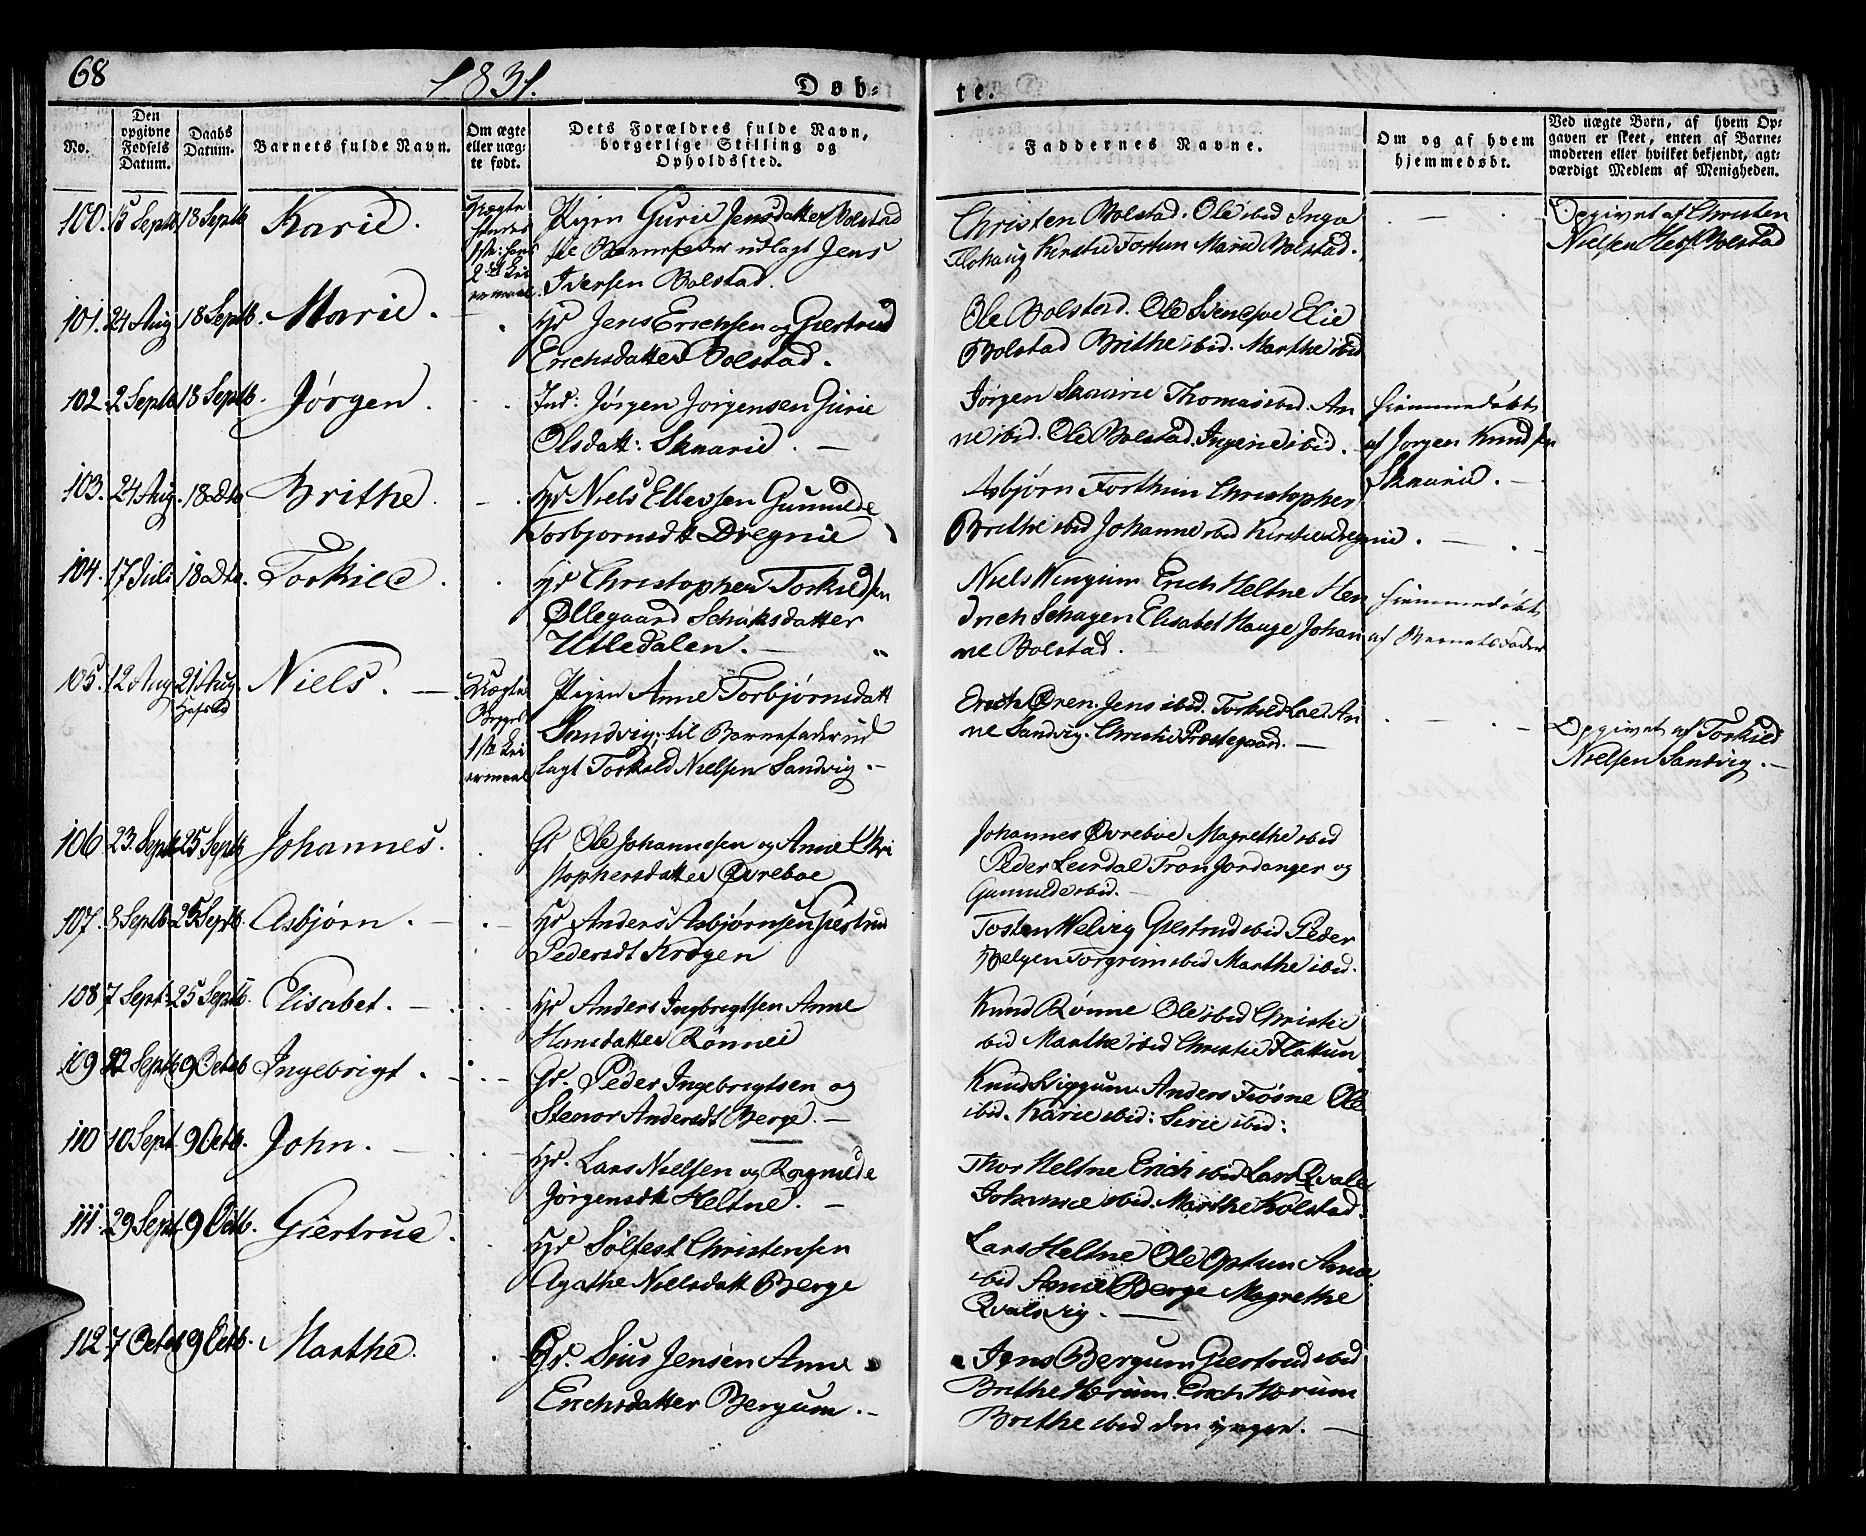 68
1831.
Døb-
te.
No.
Den opgivne Fødsels Datum.
Daabs Datum.
Barnets fulde Navn.
Om ægte eller uægte født.
Dets Forældres fulde Navn, borgerlige Stilling og Opholdssted.
Faddernes Navne.
Om og af hvem hjemmedøbt.
Ved uægte Børn, af hvem Opgaven er skeet, enten af Barnemoderen eller hvilket bekjendt, agtværdigt Medlem af Menigheden.
100. 15 Septb 18 Septb Karie.
Uægte
hendes
1ste: hans
2det Lei
ermaal.
Pigen Gurie Jensdatter Bolstad
til Barnefader udlagt Jens
Iversen Bolstad.
Christen Bolstad. Ole ibid Inga
Kirstie Fortun Marie Bolstad.
Opgivet af Christen
Nielsen Bolstad
101. 24 Aug 18 Septb. Marie.
Gr Jens Erichsen og Giertrud
Erichsdatter Bolstad.
Ole Bolstad. Ole Elie
Bolstad Brithe ibid. Marthe ibid
102. 2 Septb 18 Septb. Jørgen.
Ind: Jørgen Jørgensen Gurie
Olsdatt: Skaarie.
Jørgen Skaarie Thomas ibid. An
ne ibid. Ole Bolstad. Ingerie ibid.
hiemmedøbt
af Jørgen Knudsen
Skaarie.
103. 24 Aug. 18 dto Brithe.
Gr Niels Ellefsen Gunnilde
Torbjørnsdtt Dregnie
Asbjørn Forthun Christopher
Brithe ibid Johanne ibid Kirstie Dregnie.
104. 17 Juli 18 dto. Torkild.
Gr Christopher Torkildsen
Øllegaard Schaksdatter
Utledalen.
Niels Wingum Erich Heltne Hen
drich Schagen Elisabet Hauge Johan
ne Bolstad.
hiemmedøbt
af Barnets Fader
105. 12 Aug 21 Aug Niels.
Hafslo
Uægte
Begges
1ste Lei
ermaal
Pigen Anne Torbjørnsdatt
Sandvig. til Barnefader ud
lagt Torkild Nielsen Sandvig.
Erich Øren. Jens ibid. Torkild Lie. An
ne Sandvig. Christie Præstegaard.
Opgivet af Torkild
Nielsen Sandvig.
106. 23. Septb 25 Septb Johannes.
Gr Ole Johannessen og Anne Chri
stophersdatter Øvreboe
Johannes Øvreboe Magrethe ibid
Peder Leirdal Tron Jordanger og
Gunnilde ibid.
107. 8 Septb 25 Septb. Asbjørn.
Gr Anders Asbjørnsen Giertrud
Pedersdt Krøgen
Tosten Melvig Giertrud ibid Peder
Bolgen Torgrim ibid Marthe ibid.
108 7 Septb 25 Septb. Elisabet.
Gr Anders Ingbrigtsen Anne
Hansdatter Rønnei
Knud Rønne Ole ibid Christie
ibid Marthe ibid Christie Flattun
109 22 Septb 9 Octob Ingebrigt.
Gr. Peder Ingebrigtsen og
Stenor Andersdt Berge.
Knud Liggum. Anders Fiøsne Ole
ibid. Karie ibid: Sirie ibid:
110 10 Sept. 9 Octb. John.
Gr. Lars Nielsen og Ragnilde
Jørgensdtt Heltne.
Thor Heltne Erich ibid Lars Qvale
Johanne ibid. Marthe Kolstad.
111. 29 Sept 9 Octb. Giertrue.
Gr Sølfest Christensen
Agathe Nielsdatt Berge
Lars Heltne Ole Optun Anne
ibid Anne Berge Magrethe
Qvalsvig.
112 7 Octob 9 Octb. Marthe.
Gr. Siur Jensen Anne
Erichsdatter Bergum.
Jens Bergum Giertrud ibid
Brithe Hærum. Erich Hærum
Brithe ibid den yngre.